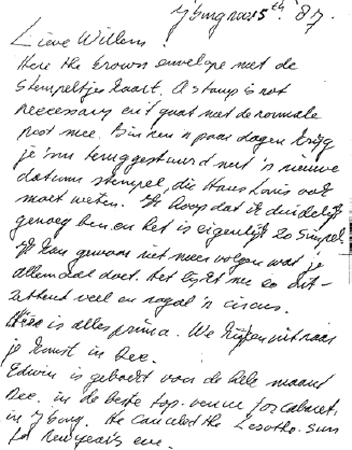 j'burg nov. 5th. '87.
Lieve Willem!
Here the brown envelope met de
stempeltjes kaart. A stamp is not
neccessary en 't gaat met de normale
post mee. Binnen 'n paar dagen krijg
je 'm teruggestuurd met 'n nieuwe
datum stempel, die Hans Louis ook
moet weten. Ik hoop dat ik duidelijk
genoeg ben en het is eigenlijk zo simpel.
Ik kan gewoon niet meer volgen wat je
allemaal doet. Het lijkt me zo uit-
veel en nogal 'n circus.
Hier is alles prima. We kijken uit naar
je komst in Dec.
Edwin is geboekt voor de hele maand
Dec. in de beste top-venue for cabaret,
in j'burg. He canceled the Lesotho-sun
for New year's eve.